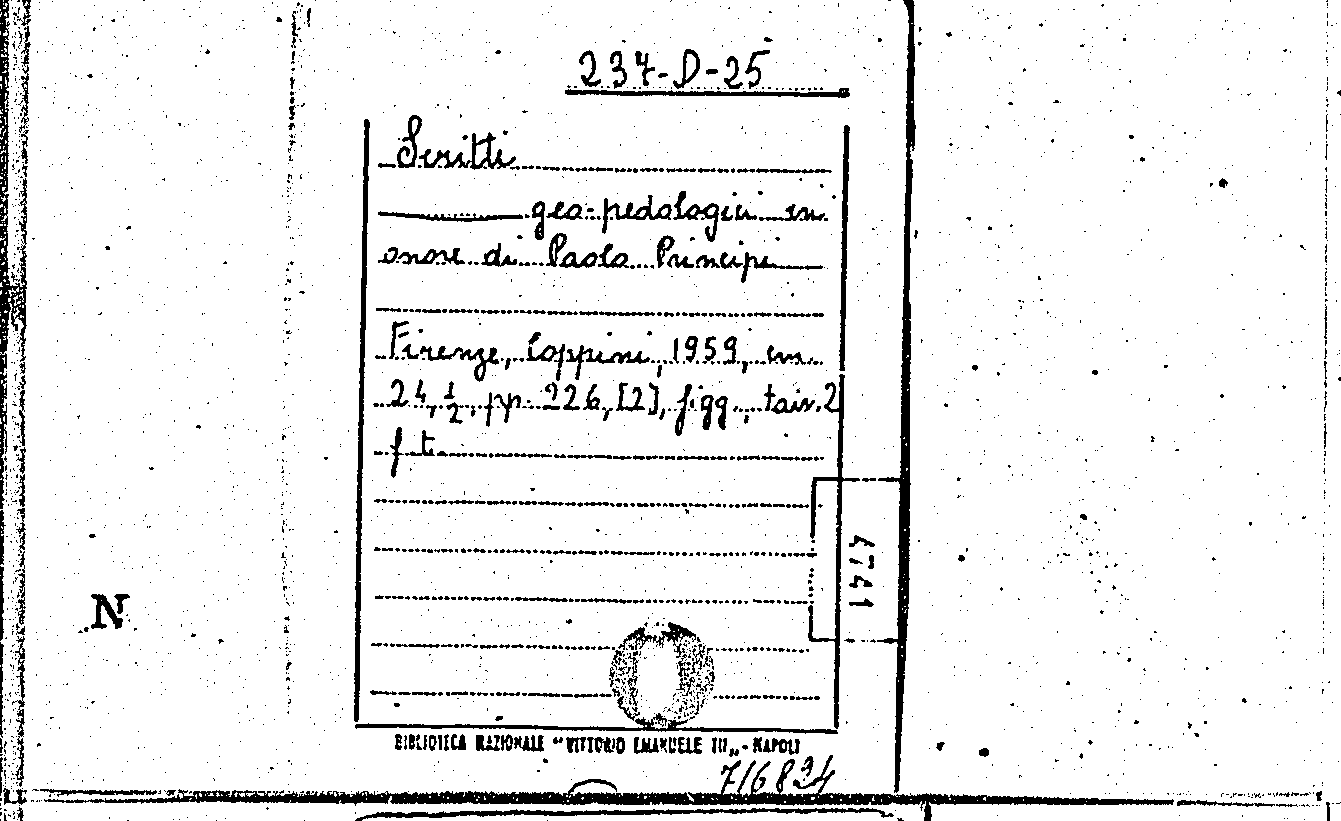 237-D-25
Scritti
geo-pedologici in
onore di Paolo Principi
Firenze, Coppini, 1959, cm.
24,½, pp. 226, [2], figg., tavv. 2
f.t.
4741
N
BIBLIOTECA NAZIONALE "VITTORIO EMANUELE III„ - NAPOLI
716834